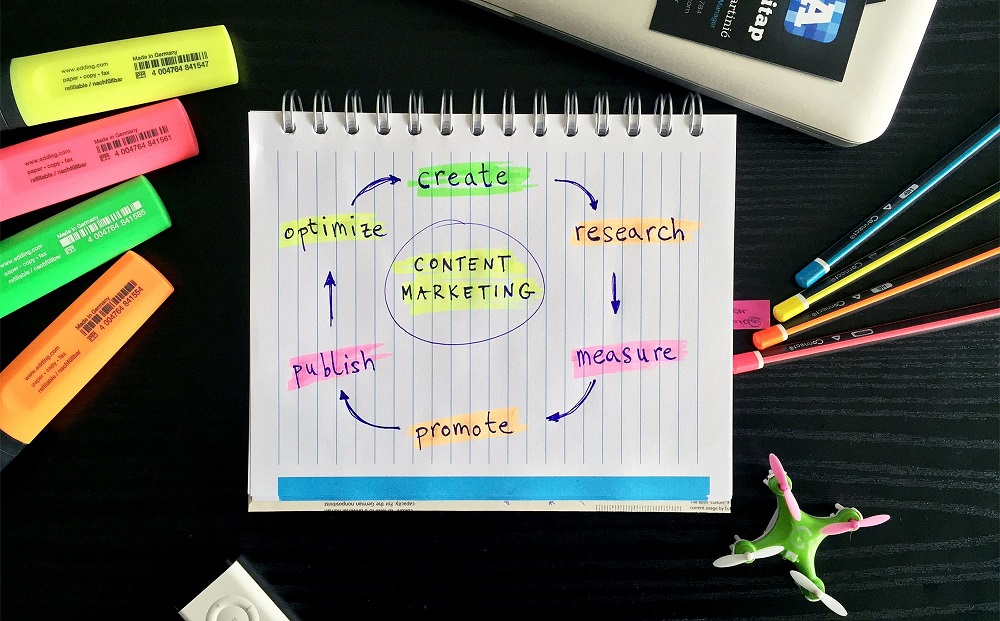 www.edding.com
paper • copy • fax
refillable / nachfüllbar
Made in Germany
4 004764 841547
www.edding.com
paper • copy • fax
refillable / nachfüllbar
Made in Germany
4 004764 841561
www.edding.com
paper • copy • fax
refillable / nachfüllbar
Made in Germany
4 004764 841585
www.edding.com
paper • copy • fax
refillable / nachfüllbar
Made in Germany
4 004764 841554
create
optimize
research
CONTENT
MARKETING
publish
measure
promote
capacity. For the German nonpositivist
Manager
artinić
itap
A
HB
Connecta
Connecta
HB
Connecta
Connecta